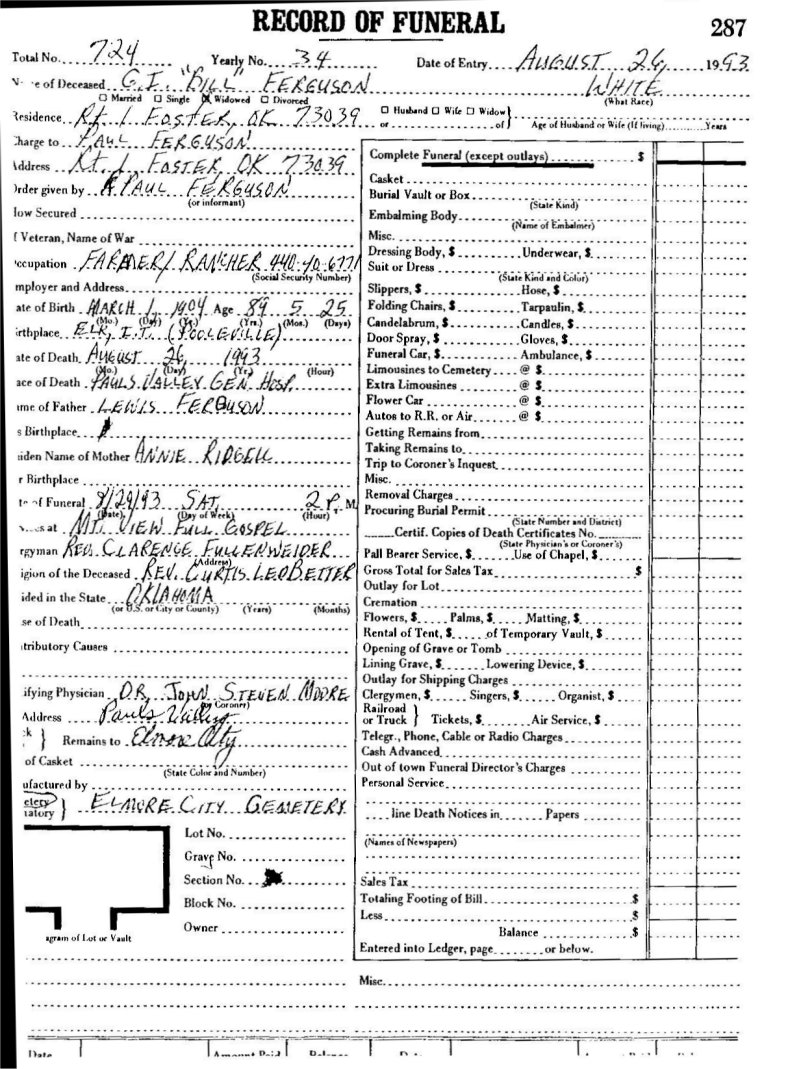 RECORD OF FUNERAL 287
Total No. 724 Yearly No. 34 Date of Entry AUGUST 26, 1993
of Deceased G.I. "BILL" FERGUSON WHITE
☐ Married ☐ Single ☒ Widowed ☐ Divorced (What Race)
Residence Rt. 1 FOSTER, OK 73039 ☐ Husband ☐ Wife ☐ Widow } or of Age of Husband or Wife (If living) Years
Charge to PAUL FERGUSON
Address Rt. 1 FOSTER, OK 73039
Order given by PAUL FERGUSON
(or informant)
How Secured
f Veteran, Name of War
ccupation FARMER/ RANCHER 440-40-6771
(Social Security Number)
mployer and Address
ate of Birth MARCH 1, 1904 Age 89 5 25
(Mo.) (Day) (Yr.) (Yrs.) (Mos.) (Days)
irthplace ELK, I.T. (POOLEVILLE)
ate of Death AUGUST 26, 1993
(Mo.) (Day) (Yr.) (Hour)
ace of Death PAULS VALLEY GEN. HOSP.
ame of Father LEWIS FERGUSON
s Birthplace
iden Name of Mother ANNIE RIDGELL
r Birthplace
te of Funeral 8/29/93 SAT. 2 P. M
(Date) (Day of Week) (Hour)
at MT. VIEW FULL GOSPEL
rgyman REV. CLARENCE FULLENWEIDER
(Address)
igion of the Deceased REV. CURTIS LEDBETTER
ided in the State OKLAHOMA
(or U.S. or City or County) (Years) (Months)
se of Death
tributory Causes
ifying Physician DR. JOHN STEVEN MOORE
(or Coroner)
Address Pauls Valley
k } Remains to Elmore City
of Casket
(State Color and Number)
ufactured by
etery
atory } ELMORE CITY CEMETERY
Lot No.
Grave No.
Section No.
Block No.
Owner
agram of Lot or Vault
Complete Funeral (except outlays) $
Casket
Burial Vault or Box
(State Kind)
Embalming Body
(Name of Embalmer)
Misc.
Dressing Body, $ Underwear, $
Suit or Dress
(State Kind and Color)
Slippers, $ Hose, $
Folding Chairs, $ Tarpaulin, $
Candelabrum, $ Candles, $
Door Spray, $ Gloves, $
Funeral Car, $ Ambulance, $
Limousines to Cemetery @ $
Extra Limousines @ $
Flower Car @ $
Autos to R.R. or Air @ $
Getting Remains from
Taking Remains to
Trip to Coroner's Inquest
Misc.
Removal Charges
Procuring Burial Permit
(State Number and District)
Certif. Copies of Death Certificates No.
(State Physician's or Coroner's)
Pall Bearer Service, $ Use of Chapel, $
Gross Total for Sales Tax $
Outlay for Lot
Cremation
Flowers, $ Palms, $ Matting, $
Rental of Tent, $ of Temporary Vault, $
Opening of Grave or Tomb
Lining Grave, $ Lowering Device, $
Outlay for Shipping Charges
Clergymen, $ Singers, $ Organist, $
Railroad
or Truck } Tickets, $ Air Service, $
Telegr., Phone, Cable or Radio Charges
Cash Advanced
Out of town Funeral Director's Charges
Personal Service
line Death Notices in Papers
(Names of Newspapers)
Sales Tax
Totaling Footing of Bill $
Less $
Balance $
Entered into Ledger, page or below.
Misc.
Date Amount Paid Balance